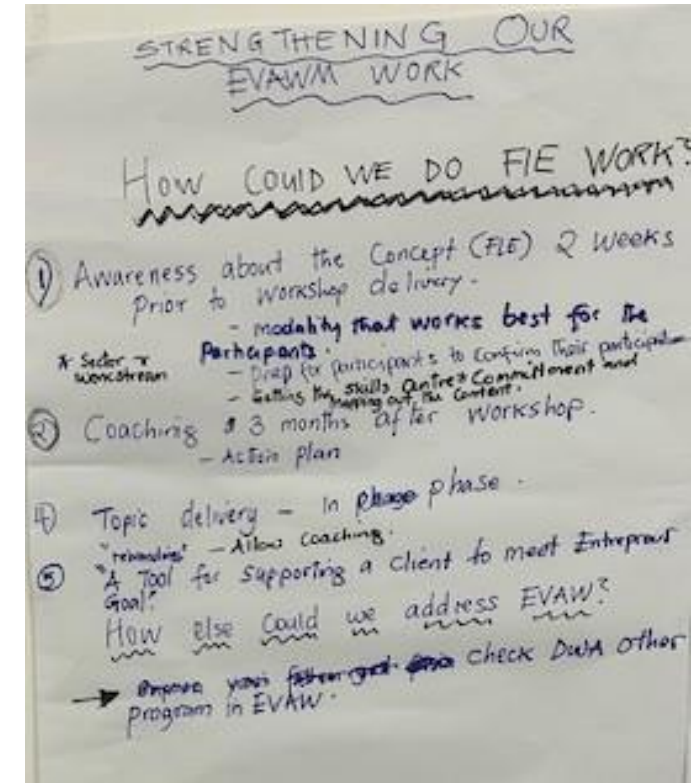 STRENGTHENING OUR
EVAWM WORK
HOW COULD WE DO FIE WORK?
① Awareness about the Concept (FLE) 2 weeks
Prior to workshop delivery.
- modality that works best for the
Participants.
* Sector &
workstream
- Prep for participants to confirm their participation
- Getting the skills centre's Commitment and
mapping out the content.
② Coaching 3 months after workshop.
- Action plan
4) Topic delivery - in phase.
- Allow coaching.
⑤ "A Tool for supporting a client to meet Entreprenr
Goal"
How else could we address EVAW?
→ your check DWA other
program in EVAW.